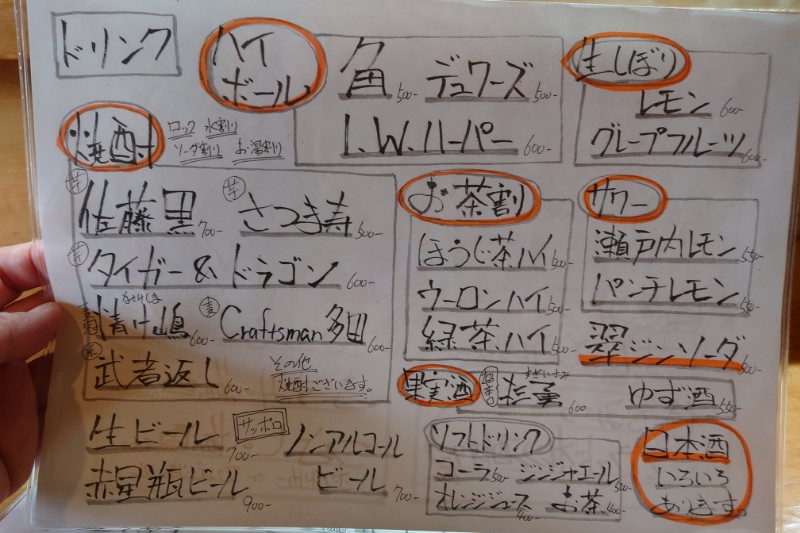 ドリンク
ハイ
ボール
角 500- デュワーズ 500-
I.W.ハーパー 600-
生しぼり
レモン 600-
グレープフルーツ 600-
焼酎
ロック 水割り
ソーダ割り お湯割り
芋 佐藤黒 700- 芋 さつま寿 500-
芋 タイガー＆ドラゴン 600-
600- 麦 Craftsman 多田 600-
米 武者返し 600-
その他
焼酎ございます。
お茶割
ほうじ茶ハイ 500-
ウーロンハイ 500-
緑茶ハイ 500-
サワー
瀬戸内レモン 550-
パンチレモン 550-
翠ジンソーダ 500-
果実酒
600- ゆず酒 550-
生ビール 700- サッポロ
赤星瓶ビール 900-
ノンアルコール
ビール 700-
ソフトドリンク
コーラ 500- ジンジャエール 500-
オレンジジュース 400- お茶 400-
日本酒
いろいろ
あります。